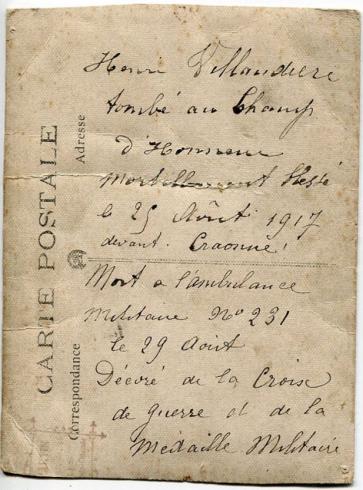 Henri Villaudiere
tombé au Champ
d'Honneur
Mortellement blessé
le 25 Août 1917
devant Craonne!
Mort a l'ambulance
Militaire N° 231
le 29 Août
Décoré de la Croise
de guerre et de la
Médaille Militaire
CARTE POSTALE
Adresse
Correspondance